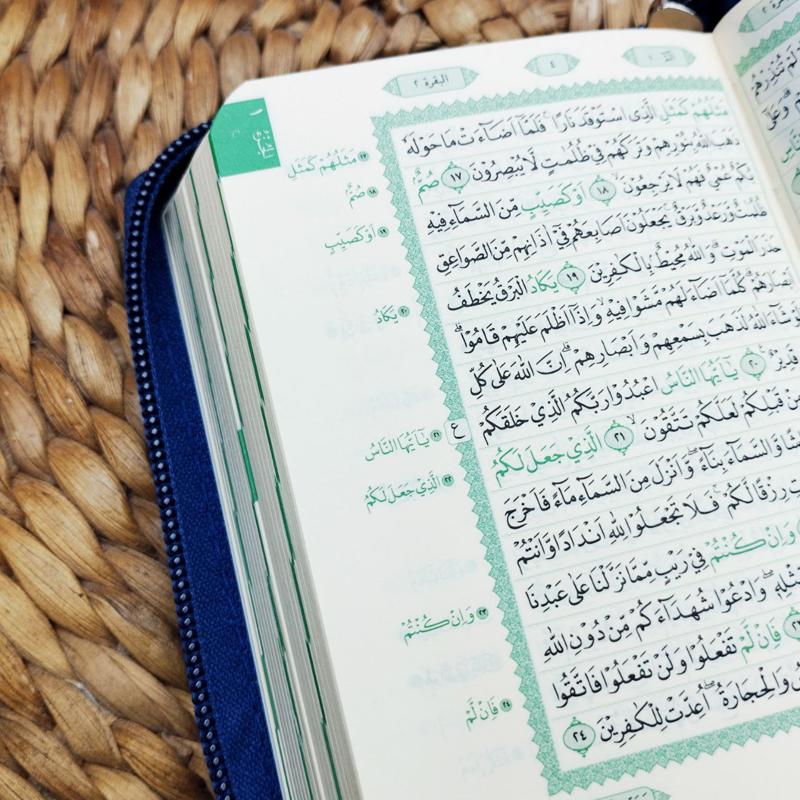 البقرة ٢
٤
مَثَلُهُمْ كَمَثَلِ الَّذِى اسْتَوْقَدَ نَارًا ۚ فَلَمَّآ اَضَآءَتْ مَاحَوْلَهٗ
ذَهَبَ اللّٰهُ بِنُوْرِهِمْ وَتَرَكَهُمْ فِيْ ظُلُمٰتٍ لَّا يُبْصِرُوْنَ ١٧ صُمٌّۢ
بُكْمٌ عُمْيٌ فَهُمْ لَا يَرْجِعُوْنَۙ ١٨ اَوْ كَصَيِّبٍ مِّنَ السَّمَآءِ فِيْهِ
ظُلُمٰتٌ وَّرَعْدٌ وَّبَرْقٌۚ يَجْعَلُوْنَ اَصَابِعَهُمْ فِيْٓ اٰذَانِهِمْ مِّنَ الصَّوَاعِقِ
حَذَرَ الْمَوْتِۗ وَاللّٰهُ مُحِيْطٌۢ بِالْكٰفِرِيْنَ ١٩ يَكَادُ الْبَرْقُ يَخْطَفُ
اَبْصَارَهُمْۗ كُلَّمَآ اَضَآءَ لَهُمْ مَّشَوْا فِيْهِۙ وَاِذَآ اَظْلَمَ عَلَيْهِمْ قَامُوْاۗ
شَآءَ اللّٰهُ لَذَهَبَ بِسَمْعِهِمْ وَاَبْصَارِهِمْۗ اِنَّ اللّٰهَ عَلٰى كُلِّ
قَدِيْرٌ ٢٠ يٰٓاَيُّهَا النَّاسُ اعْبُدُوْا رَبَّكُمُ الَّذِيْ خَلَقَكُمْ
مِنْ قَبْلِكُمْ لَعَلَّكُمْ تَتَّقُوْنَۙ ٢١ الَّذِيْ جَعَلَ لَكُمُ
وَّالسَّمَآءَ بِنَآءًۖ وَّاَنْزَلَ مِنَ السَّمَآءِ مَآءً فَاَخْرَجَ
رِزْقًا لَّكُمْۚ فَلَا تَجْعَلُوْا لِلّٰهِ اَنْدَادًا وَّاَنْتُمْ
وَاِنْ كُنْتُمْ فِيْ رَيْبٍ مِّمَّا نَزَّلْنَا عَلٰى عَبْدِنَا
مِّثْلِهٖۖ وَادْعُوْا شُهَدَآءَكُمْ مِّنْ دُوْنِ اللّٰهِ
٢٣ فَاِنْ لَّمْ تَفْعَلُوْا وَلَنْ تَفْعَلُوْا فَاتَّقُوا
وَالْحِجَارَةُۖ اُعِدَّتْ لِلْكٰفِرِيْنَ ٢٤
١٧ مَثَلُهُمْ كَمَثَلِ
١٨ صُمٌّ
١٩ اَوْ كَصَيِّبٍ
٢٠ يَكَادُ
ع
٢١ يٰٓاَيُّهَا النَّاسُ
٢٢ الَّذِيْ جَعَلَ لَكُمُ
٢٣ وَاِنْ كُنْتُمْ
٢٤ فَاِنْ لَّمْ